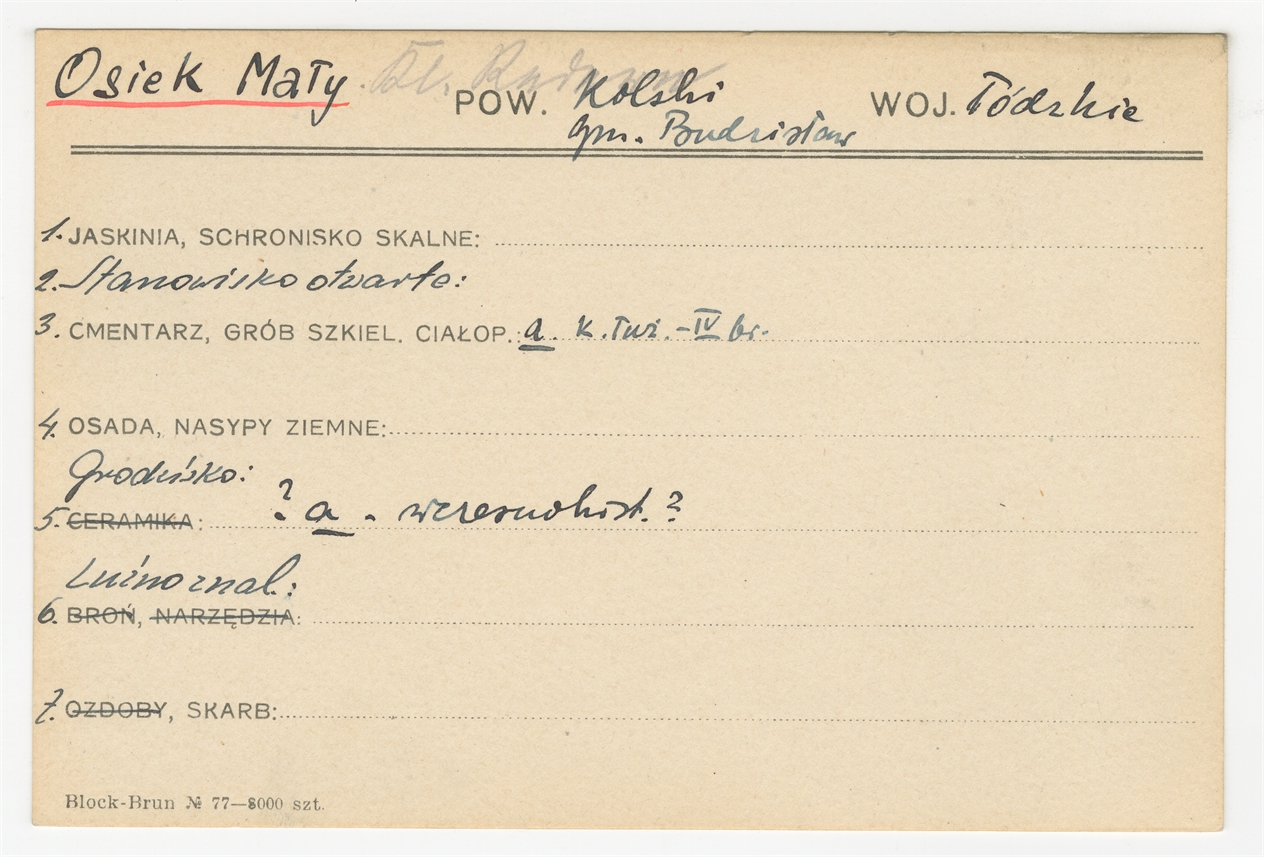 Osiek Mały
POW. Kolski WOJ. Łódzkie
gm. Budzisław
1. JASKINIA, SCHRONISKO SKALNE:
2. Stanowisko otwarte:
3. CMENTARZ, GRÓB SZKIEL. CIAŁOP.: a. K. Łuż. - IV br.
4. OSADA, NASYPY ZIEMNE:
Grodzisko:
5. CERAMIKA: ? a. wczesnohist. ?
Luźno znal.:
6. BROŃ, NARZĘDZIA:
7. OZDOBY, SKARB:
Block-Brun № 77—8000 szt.